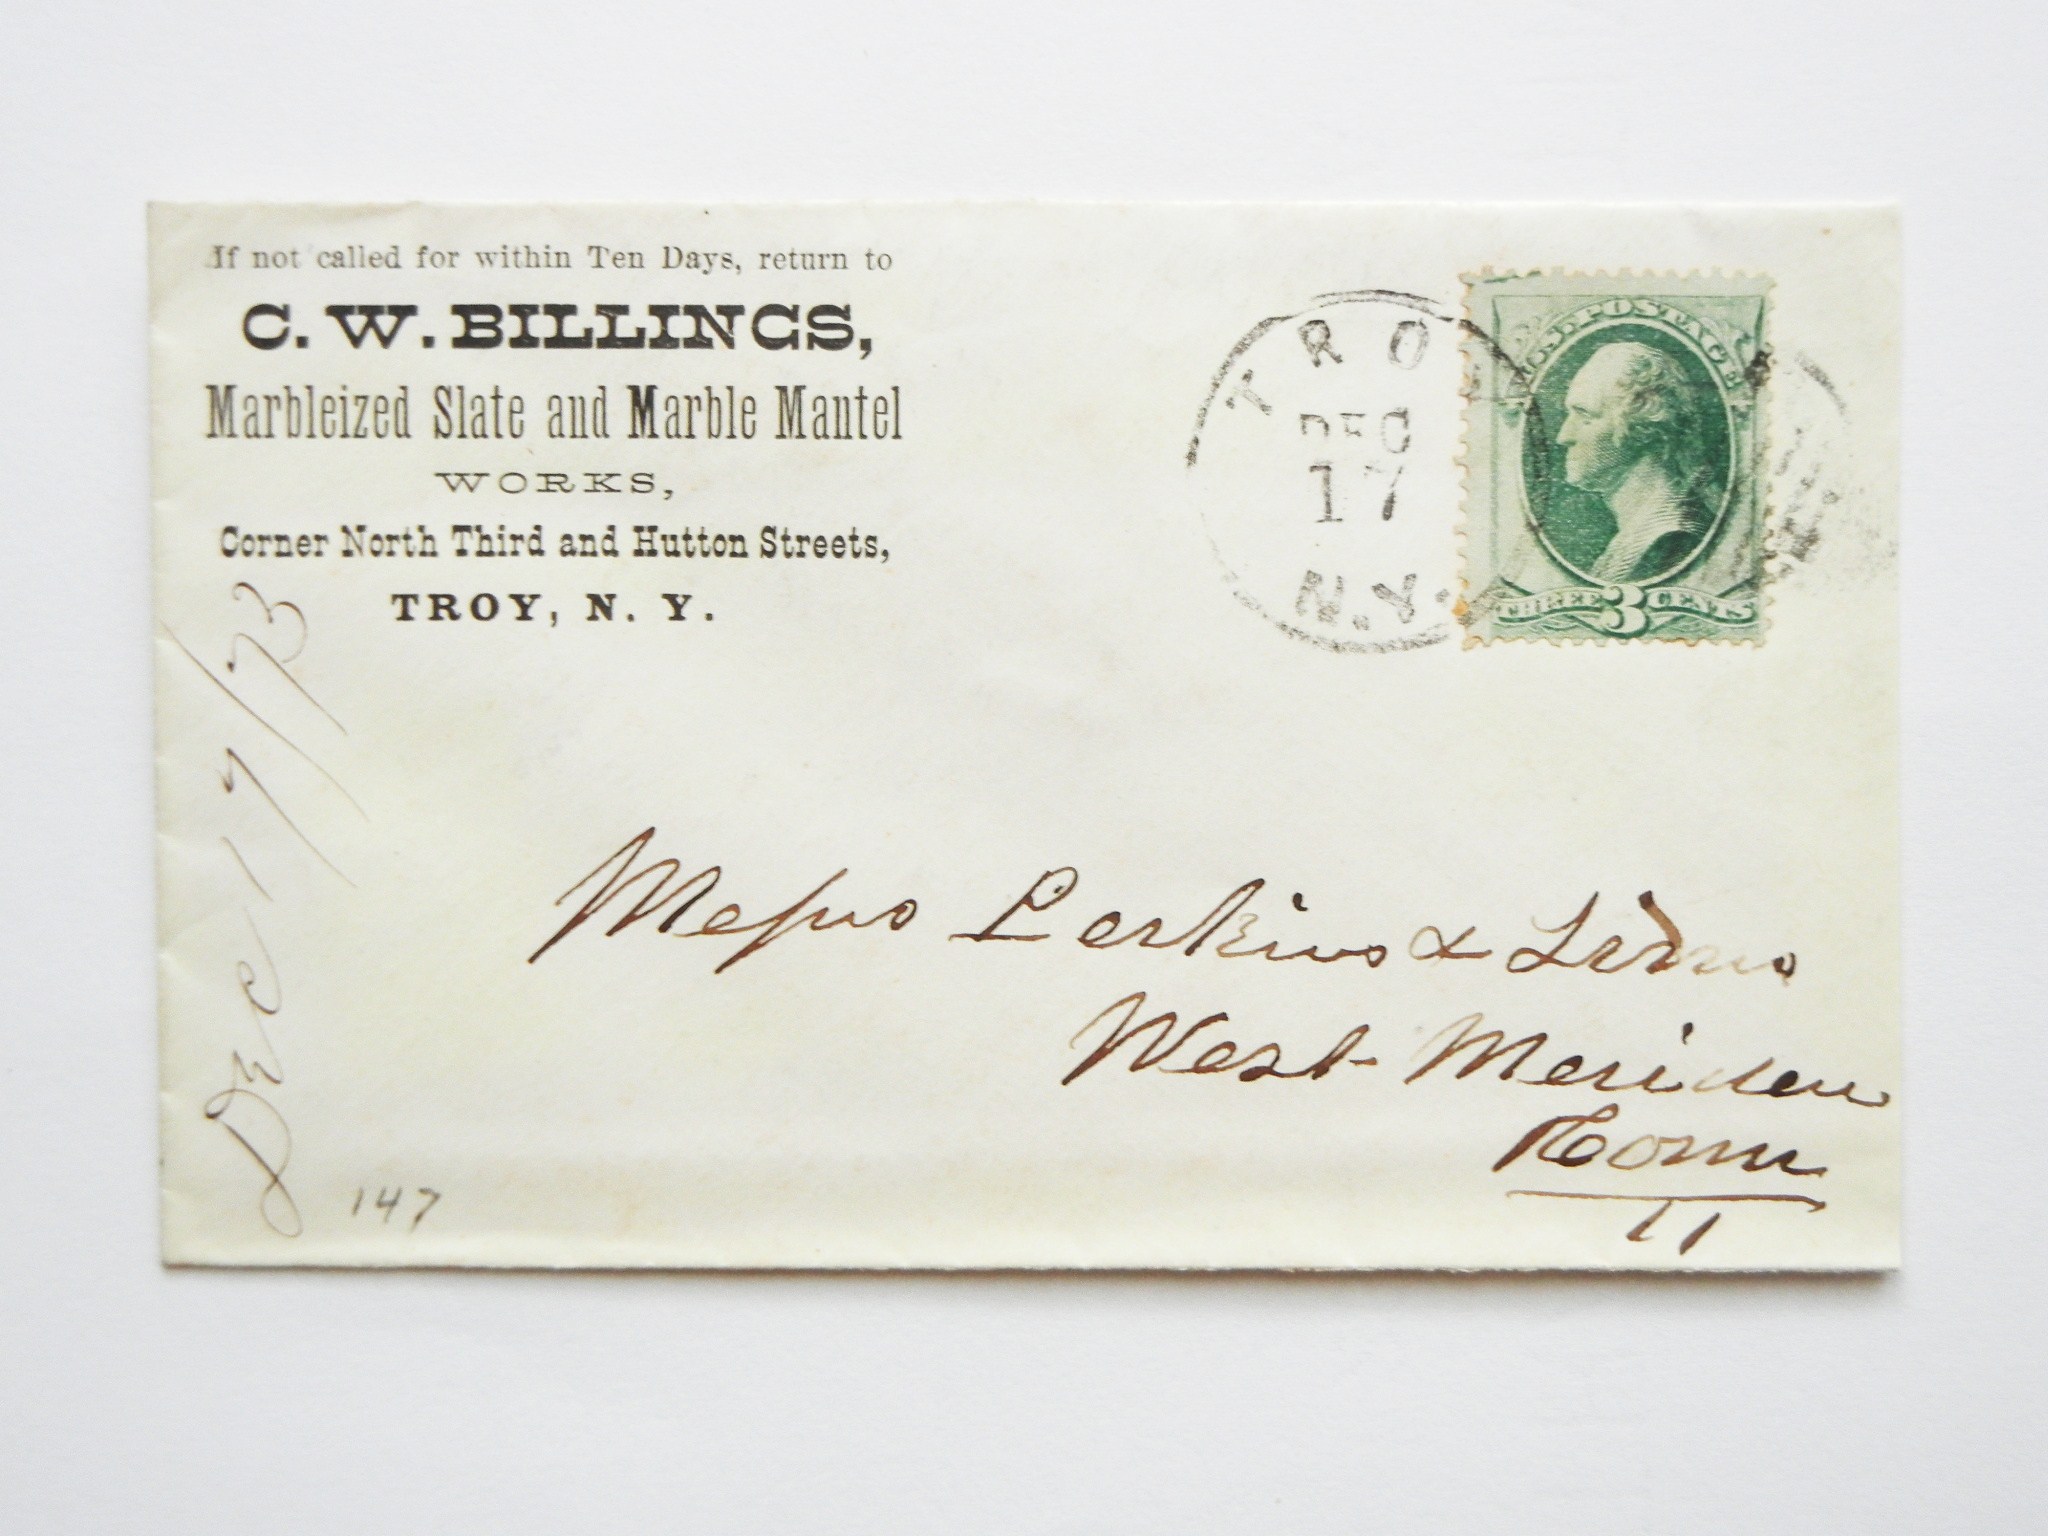 If not called for within Ten Days, return to
C. W. BILLINGS,
Marbleized Slate and Marble Mantel
WORKS,
Corner North Third and Hutton Streets,
TROY, N. Y.
TROY
DEC
17
N.Y.
U.S. POSTAGE
THREE 3 CENTS
Dec 17/73
Messrs Perkins &
West Meriden
Conn
147